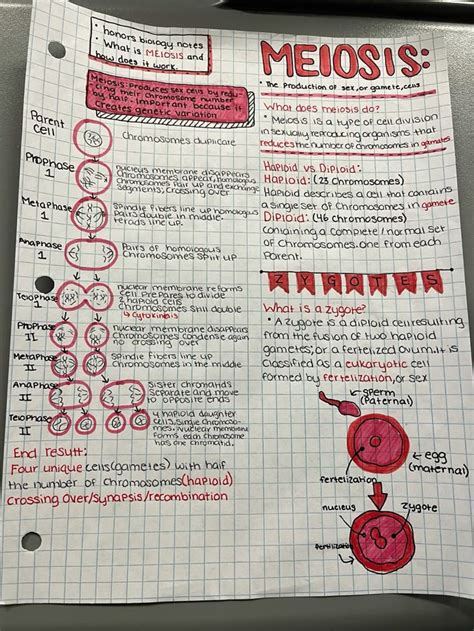 • honors biology notes
• What is MEIOSIS and
how does it work.
Meiosis: produces sex cells by redu-
cing their chromosome number
by half. Important because it
creates genetic variation
Parent
Cell
Chromosomes duplicate
Prophase
1
nucleus membrane disappears
Chromosomes appear, homologous
Chromosomes pair up and exchange
Segments, Crossing over
Metaphase
1
Spindle fibers line up homologous
pairs double in middle-
tetrads line up.
Anaphase
1
Pairs of homologous
Chromosomes split up
Telophase
1
nuclear membrane reforms
cell prepares to divide
2 haploid cells
Chromosomes still double
↳ Cytokinesis
Prophase
II
nuclear membrane disappears
Chromosomes condense again
no crossing
Metaphase
II
Spindle fibers line up
Chromosomes in the middle
Anaphase
II
Sister chromatids
Separate and move
to opposite ends
Telophase
II
4 haploid daughter
cells. Single Chromoso-
mes. Nuclear membrane
forms each chromosome
has one chromatid.
End result:
Four unique cells (gametes) with half
the number of chromosomes (haploid)
Crossing over/synapsis/recombination
MEIOSIS:
• The production of sex, or gamete, cells
What does meiosis do?
• Meiosis is a type of cell division
in sexually reproducing organisms that
reduces the number of chromosomes in gametes
Haploid vs Diploid:
Haploid: (23 Chromosomes)
Haploid describes a cell that contains
a single set of Chromosomes in gamete
Diploid: (46 chromosomes)
Containing a complete/normal set
of Chromosomes. one from each
Parent.
ZYGOTES
What is a zygote?
• A zygote is a diploid cell resulting
from the fusion of two haploid
gametes; or a fertelized ovum. it is
classified as a eukaryotic cell
formed by fertelization, or sex
sperm
(Paternal)
egg
(maternal)
fertelization
nucleus
zygote
fertelization